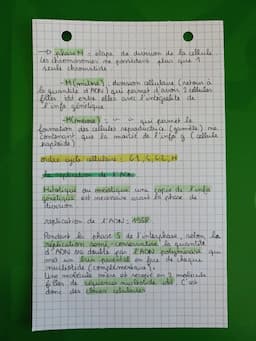 → phase M = étape de division de la cellule
les chromosomes ne possèdent plus que 1
seule chromatide
- M(mitose) : division cellulaire (retour à
la quantité d'ADN) qui permet d'avoir 2 cellules
filles idt entre elles avec l'intégralité de
l'info génétique
- M(méiose) : " " qui permet la
formation des cellules reproductrices (gamète) ne
contenant que la moitié de l'info g (cellule
haploïde)
ordre cycle cellulaire G1, S, G2, M
la réplication de l'ADN
Mitotique ou méiotique une copie de l'info
génétique est nécessaire avant la phase de
division
réplication de l'ADN :
Pendant la phase S de l'interphase, selon la
réplication semi-conservative la quantité
d'ADN se double par l'ADN polymérase qui
met un brin en face de chaque
nucléotide (complémentaire).
Une molécule mère et revient en 2 molécules
filles de séquences nucléotide idt. C'est
donc des clones cellulaires